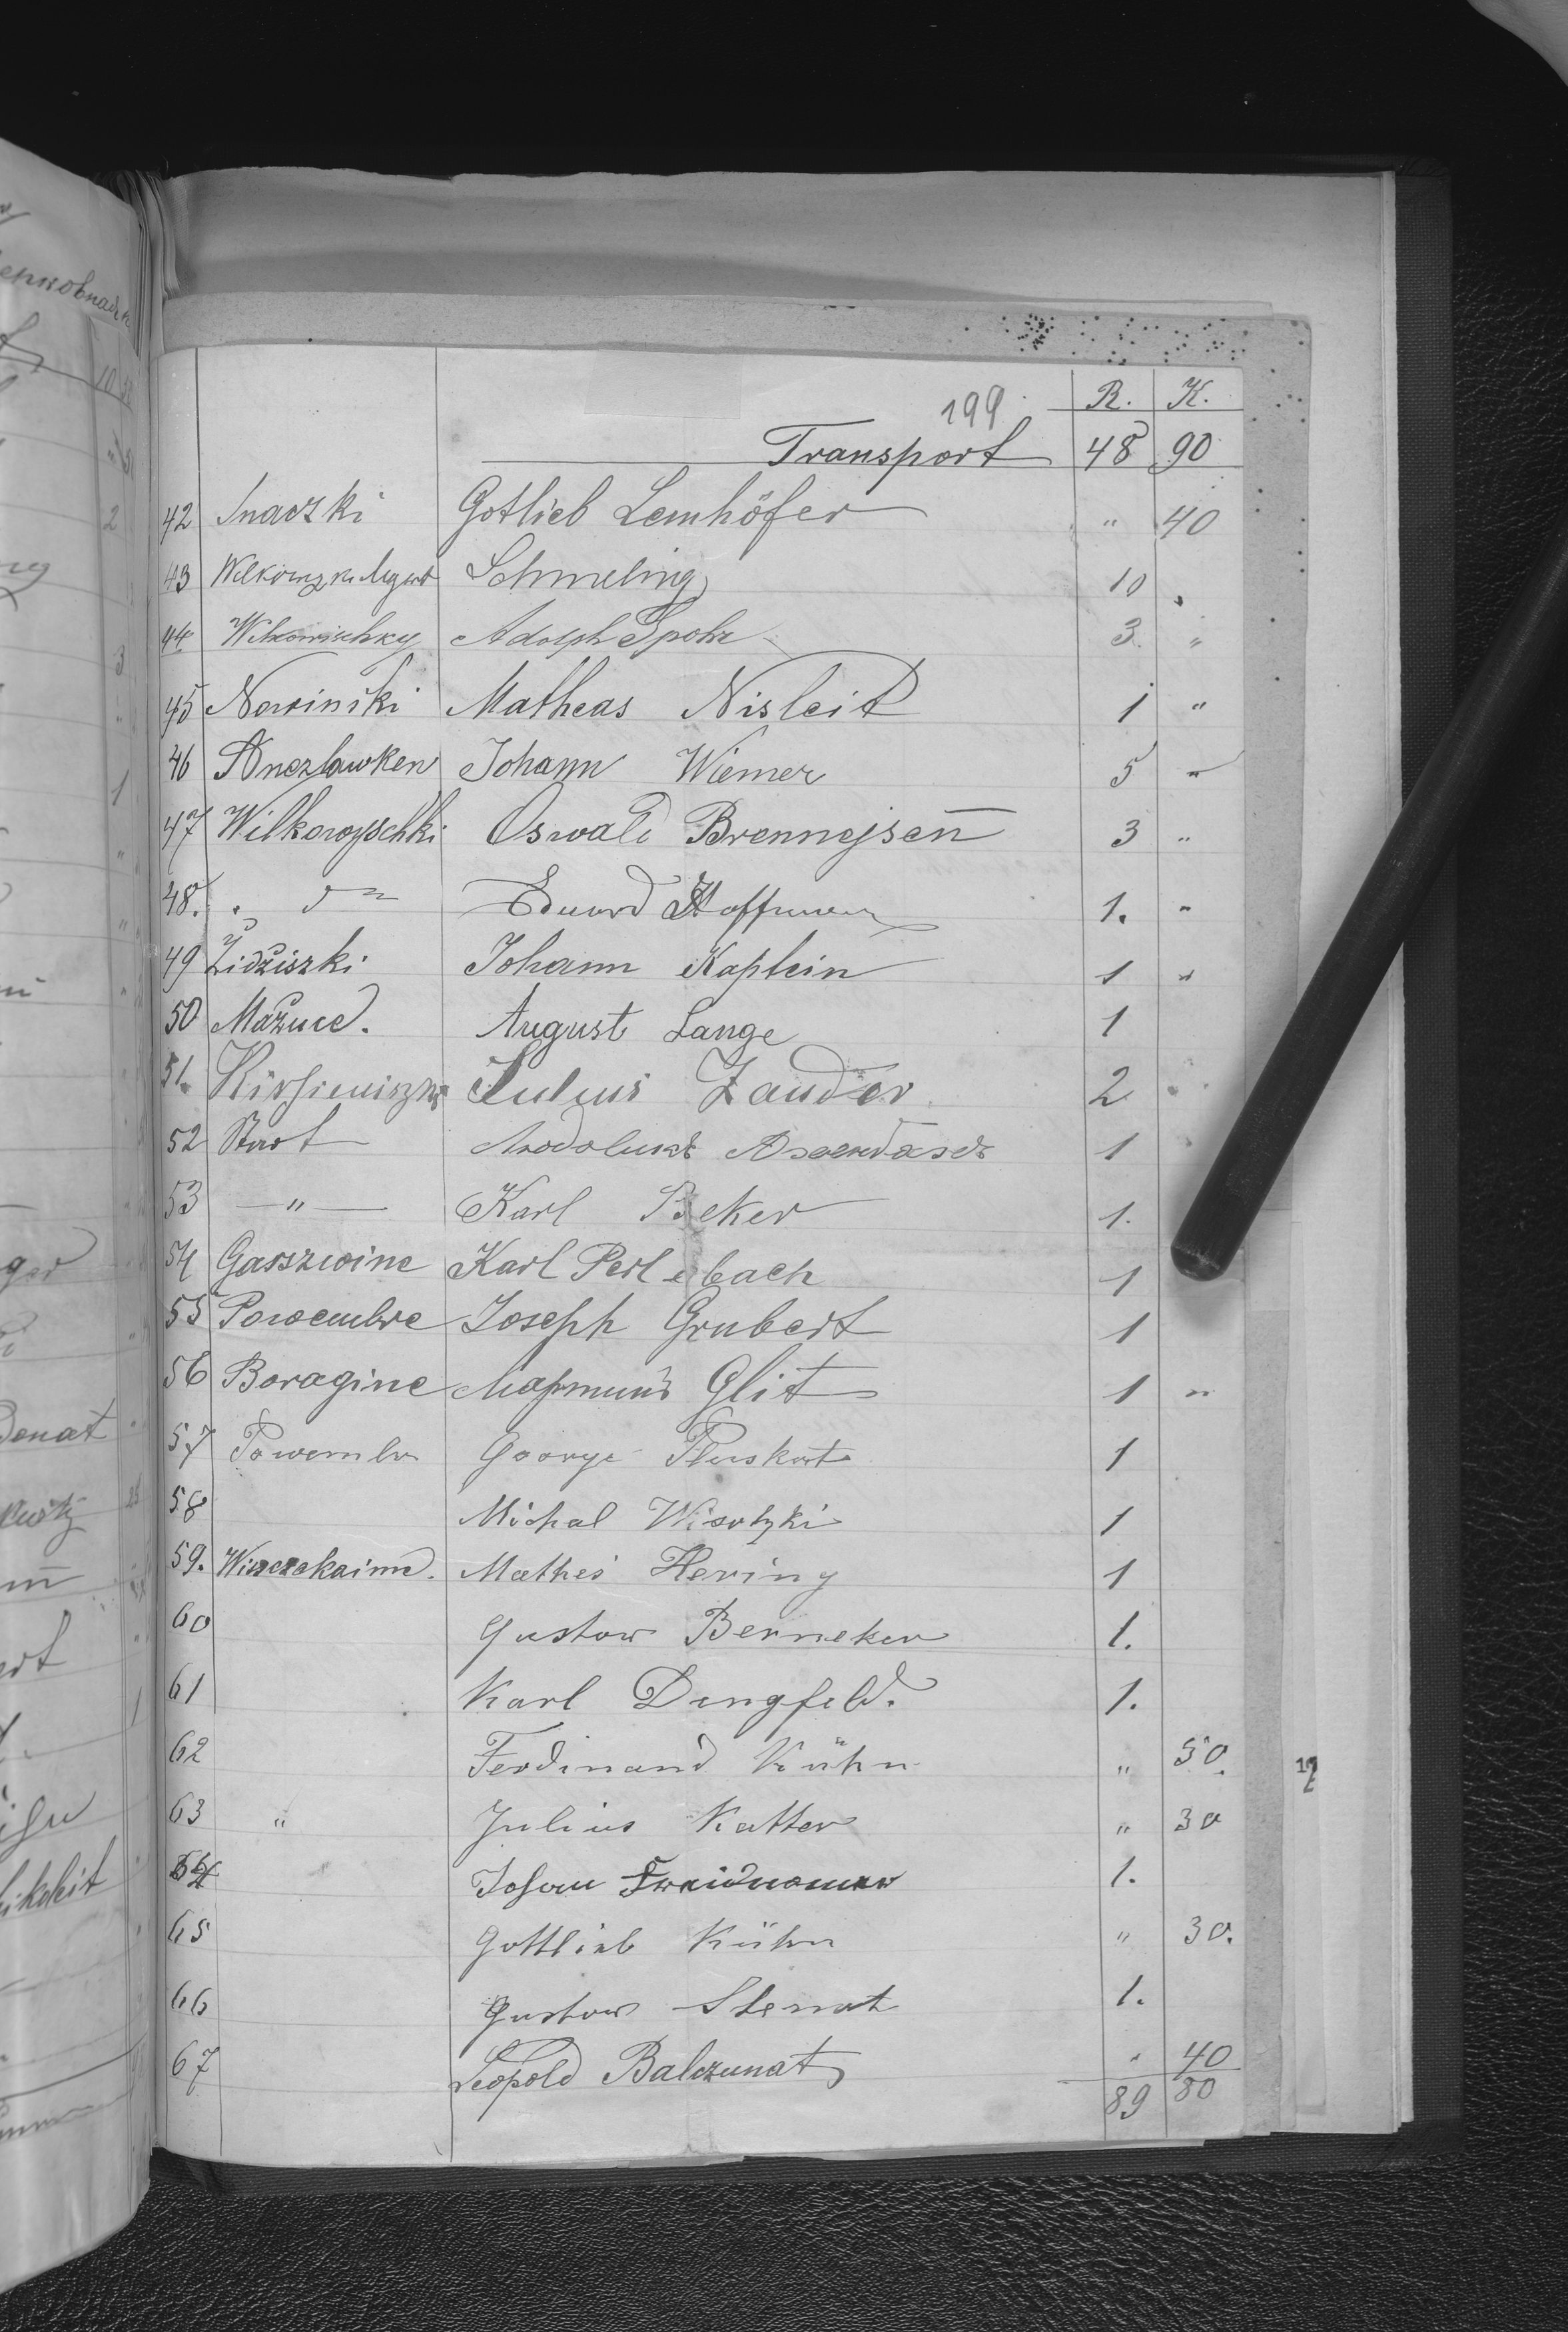 199
R. K.
Transport 48 90
42 Snaczki Gotlieb Lemhöfer " 40
43 Schmeling 10 "
44. Wilkowischky Adolph Spohr 3 "
45 Nowiniki Matheas Nisleit 1 "
46 Anczlawken Johann Wiemer 5 "
47 Wilkowyschki Oswald Brennejsen̅ 3 "
48. " Eduard Hoffmann 1. "
49 Židžiszki Johann Kaplein 1 "
50 Mažuce. August Lange 1
51. Julius Zander 2
52 1
53 — " — Karl Beker 1.
54 Gasszwine Karl Perlebach 1
55 Powembre Joseph Grubert 1
56 Boragine Glit 1 "
57 Powembr George Pluskat 1
58 Michal Wisotzki 1
59. Winczakaime. Mathes Hering 1
60 Gustow Berneker 1.
61 Karl Dingfeld. 1.
62 Ferdinand Kühn " 50.
63 " Julius Katter " 30
64 1.
65 Gottlieb Kühn " 30.
66 Gustow Stenat 1.
67 Leopold Balczunat " 40
89 80